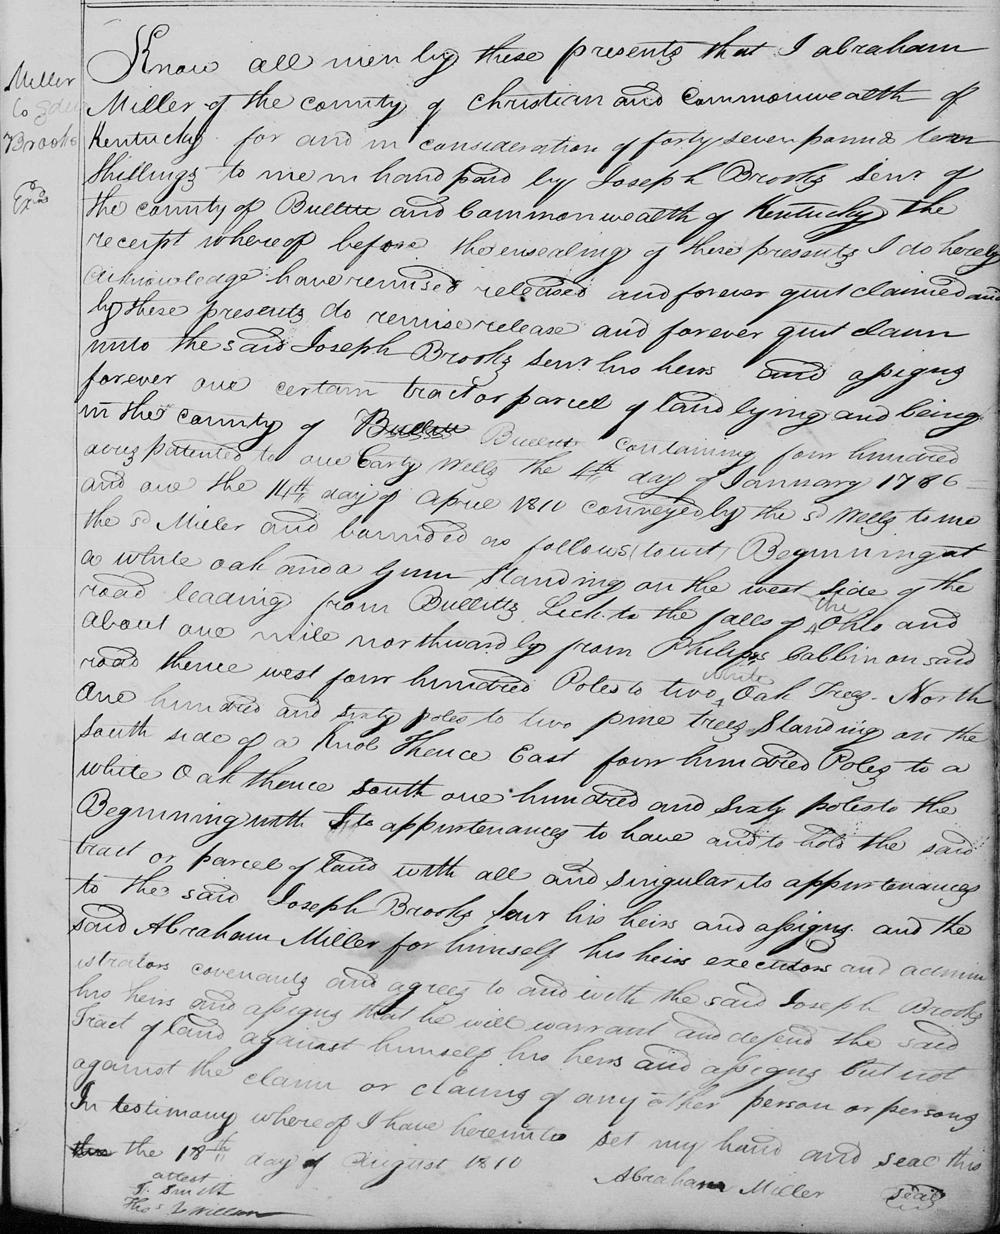 Miller
to deed
Brooks
Exd
Know all men by these presents that I abraham
Miller of the county of Christian and Commonwealth of
Kentucky for and in consideration of forty seven pounds ten
Shillings to me in hand paid by Joseph Brooks Senr of
the county of Bullitt and Commonwealth of Kentucky the
receipt whereof before the ensealing of these presents I do hereby
acknowledge have remised released and forever quit claimed and
by these presents do remise release and forever quit claim
unto the said Joseph Brooks Senr his heirs and assigns
forever one certain tract or parcel of land lying and being
in the county of Bullitt Bullitt containing four hundred
acres patented to one Carty Wells the 4th day of January 1786
and one the 14th day of April 1810 conveyed by the sd Wells to me
the sd Miller and bounded as follows (towit) Beginning at
a white oak and a Gum Standing on the west side of the
road leading from Bullitts Lick to the falls of the Ohio and
about one mile northwardly from Philips Cabbin on said
road thence west four hundred Poles to two white Oak Trees - North
One hundred and sixty poles to two pine trees Standing on the
South side of a Knob Thence East four hundred Poles to a
white Oak thence South one hundred and sixty poles to the
Beginning with Its appurtenances to have and to hold the said
tract or parcel of land with all and singular its appurtenances
to the said Joseph Brooks Senr his heirs and assigns and the
said Abraham Miller for himself his heirs executors and admin
istrators covenants and agrees to and with the said Joseph Brooks
his heirs and assigns that he will warrant and defend the said
Tract of land against himself his heirs and assigns but not
against the claim or claims of any other person or persons
In testimony whereof I have hereunto set my hand and seal this
the 18th day of August 1810
Abraham Miller seal
attest
Smith
Thos